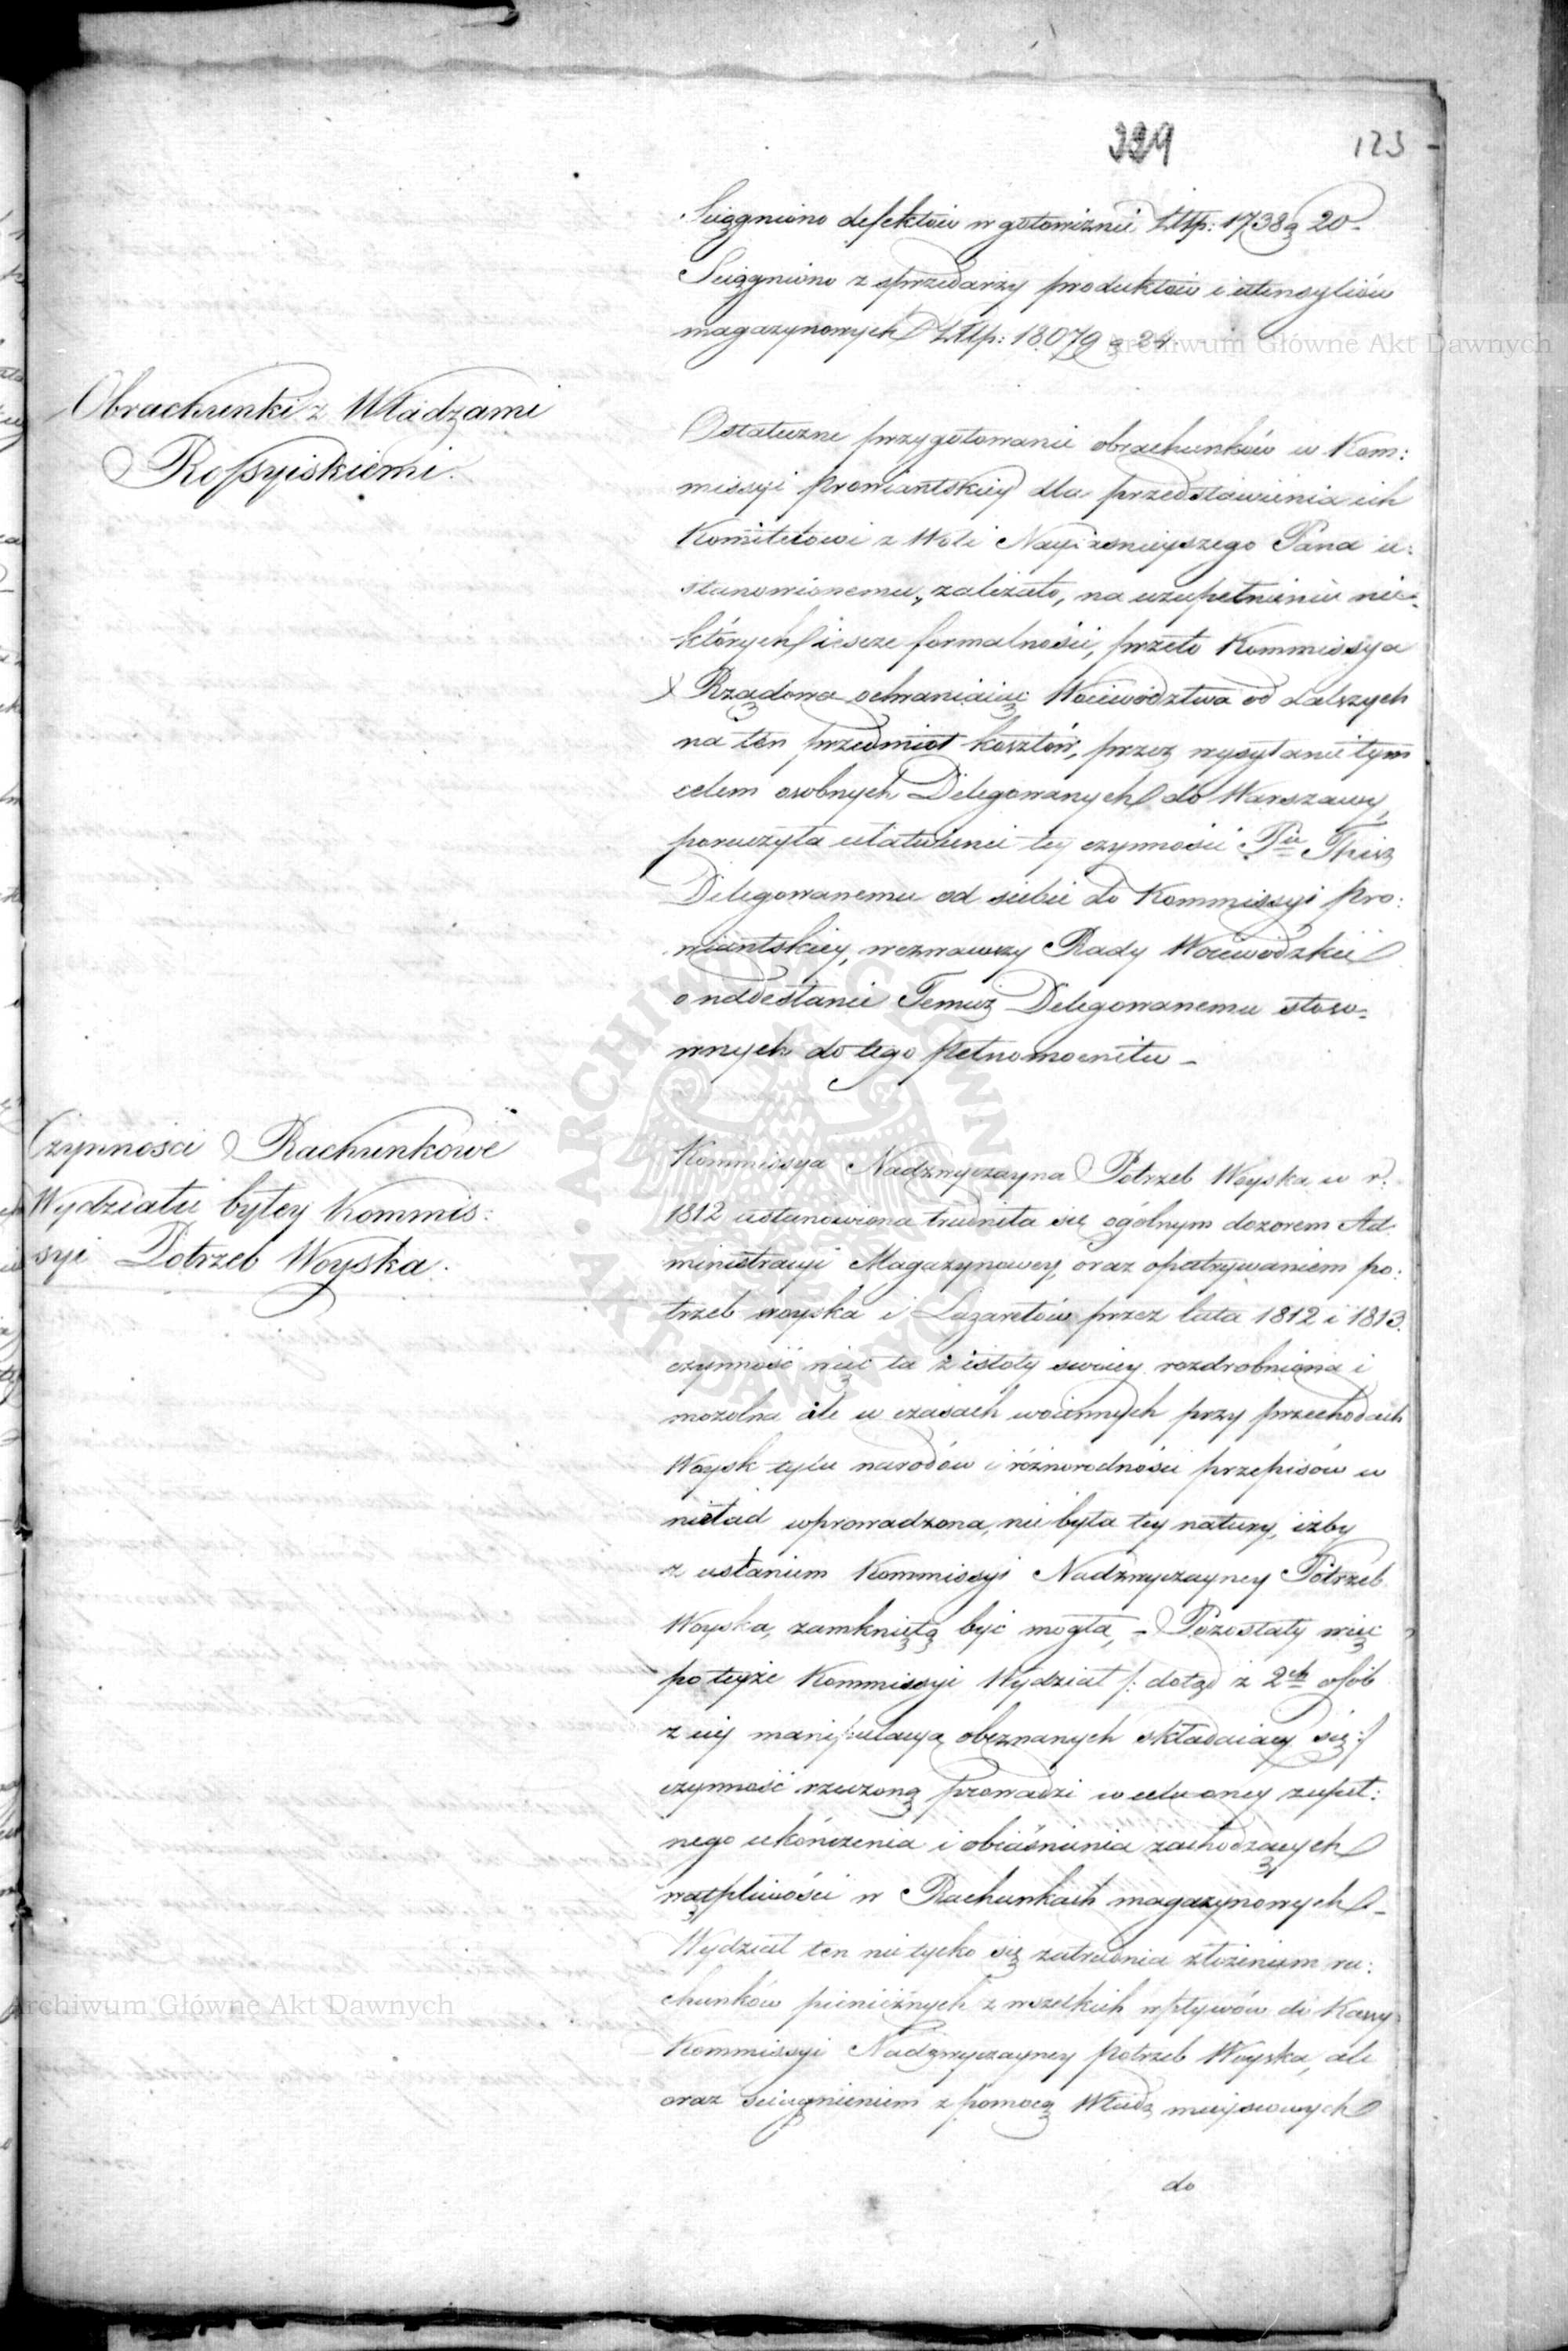 339
123
Sciągniono defektów w gotowiźnie Złtp: 1738 g 20 -
Sciągniono z sprzedarzy produktów i utensyliów
magazynowych Złtp: 18,079 g 24.
Archiwum Główne Akt Dawnych
Obrachunki z Władzami
Rossyiskiemi.
Ostateczne przygotowanie obrachunków w Kom:
missyi Prowiantskiey dla przedstawienia ich
Komitetowi z Woli Nayiasnieyszego Pana u:
stanowionemu, zależało, na uzupełnieniu nie:
których ieszcze formalności, przeto Kommissya
Rządowa ochraniaiąc Woiewództwa od dalszych
na ten przedmiot kosztów, przez wysyłanie tym
celem osobnych Delegowanych do Warszawy,
poruczyła ułatwienie tey czynności
Delegowanemu od siebie do Kommissyi Pro:
wiantskiey, wezwawszy Rady Woiewódzkie
o nadesłanie Temuż Delegowanemu stoso-
wnych do tego pełnomocnictw -
Czynności Rachunkowe
Wydziału byłey Kommis:
syi Potrzeb Woyska.
Kommissya Nadzwyczayna Potrzeb Woyska w r.
1812 ustanowiona trudniła się ogólnym dozorem Ad:
ministracyi Magazynowey, oraz opatrywaniem po:
trzeb woyska i Lazaretów przez lata 1812 i 1813.
czynność więc ta z istoty swoiey rozdrobniona i
mozolna ale w czasach woiennych przy przechodach
Woysk tylu narodów i różnorodności przepisów w
nieład wprowadzona, nie była tey natury, iżby
z ustaniem Kommissyi Nadzwyczayney Potrzeb
Woyska, zamkniętą być mogła, - Pozostały więc
po teyże Kommissyi Wydział /: dotąd z 2ch osób
z iey manipulacyą obeznanych składaiący się :/
czynność rzeczoną prowadzi w celu oney zupeł:
nego ukończenia i obiaśnienia zachodzących
wątpliwości w Rachunkach magazynowych -
Wydział ten nie tylko się zatrudnia złożeniem ra:
chunków pieniężnych z wszelkich wpływów do Kassy
Archiwum Główne Akt Dawnych
Kommissyi Nadzwyczayney potrzeb Woyska, ale
oraz sciągnieniem z pomocą Władz mieyscowych
do
ARCHIWUM GŁÓWNE AKT DAWNYCH